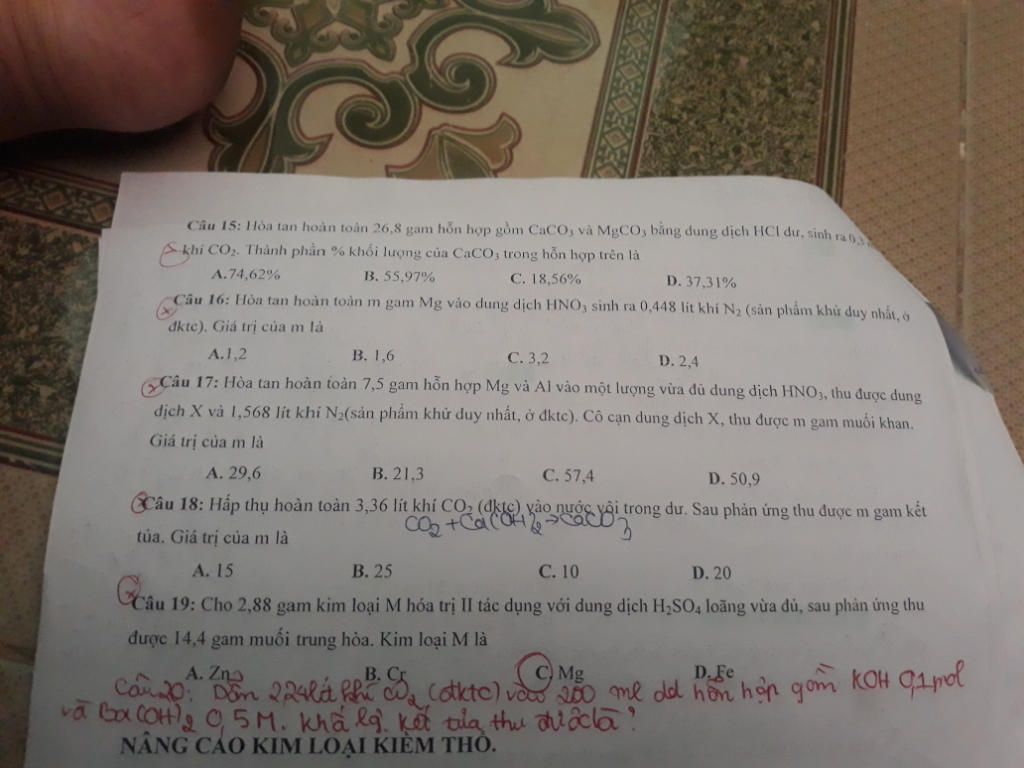 Câu 15: Hòa tan hoàn toàn 26,8 gam hỗn hợp gồm CaCO₃ và MgCO₃ bằng dung dịch HCl dư, sinh ra 0,3
khí CO₂. Thành phần % khối lượng của CaCO₃ trong hỗn hợp trên là
A.74,62% B. 55,97% C. 18,56% D. 37,31%
Câu 16: Hòa tan hoàn toàn m gam Mg vào dung dịch HNO₃ sinh ra 0,448 lít khí N₂ (sản phẩm khử duy nhất, ở
đktc). Giá trị của m là
A.1,2 B. 1,6 C. 3,2 D. 2,4
Câu 17: Hòa tan hoàn toàn 7,5 gam hỗn hợp Mg và Al vào một lượng vừa đủ dung dịch HNO₃, thu được dung
dịch X và 1,568 lít khí N₂(sản phẩm khử duy nhất, ở đktc). Cô cạn dung dịch X, thu được m gam muối khan.
Giá trị của m là
A. 29,6 B. 21,3 C. 57,4 D. 50,9
Câu 18: Hấp thụ hoàn toàn 3,36 lít khí CO₂ (đktc) vào nước vôi trong dư. Sau phản ứng thu được m gam kết
CO₂ + Ca(OH)₂ → CaCO₃
tủa. Giá trị của m là
A. 15 B. 25 C. 10 D. 20
Câu 19: Cho 2,88 gam kim loại M hóa trị II tác dụng với dung dịch H₂SO₄ loãng vừa đủ, sau phản ứng thu
được 14,4 gam muối trung hòa. Kim loại M là
A. Zn B. Cr C. Mg D. Fe
Câu 20: Dẫn 2,24 lít khí CO₂ (đktc) vào 200 ml dd hỗn hợp gồm KOH 0,1 mol
và Ba(OH)₂ 0,5M. khố lg. kết tủa thu được là?
NÂNG CAO KIM LOẠI KIỀM THỔ.